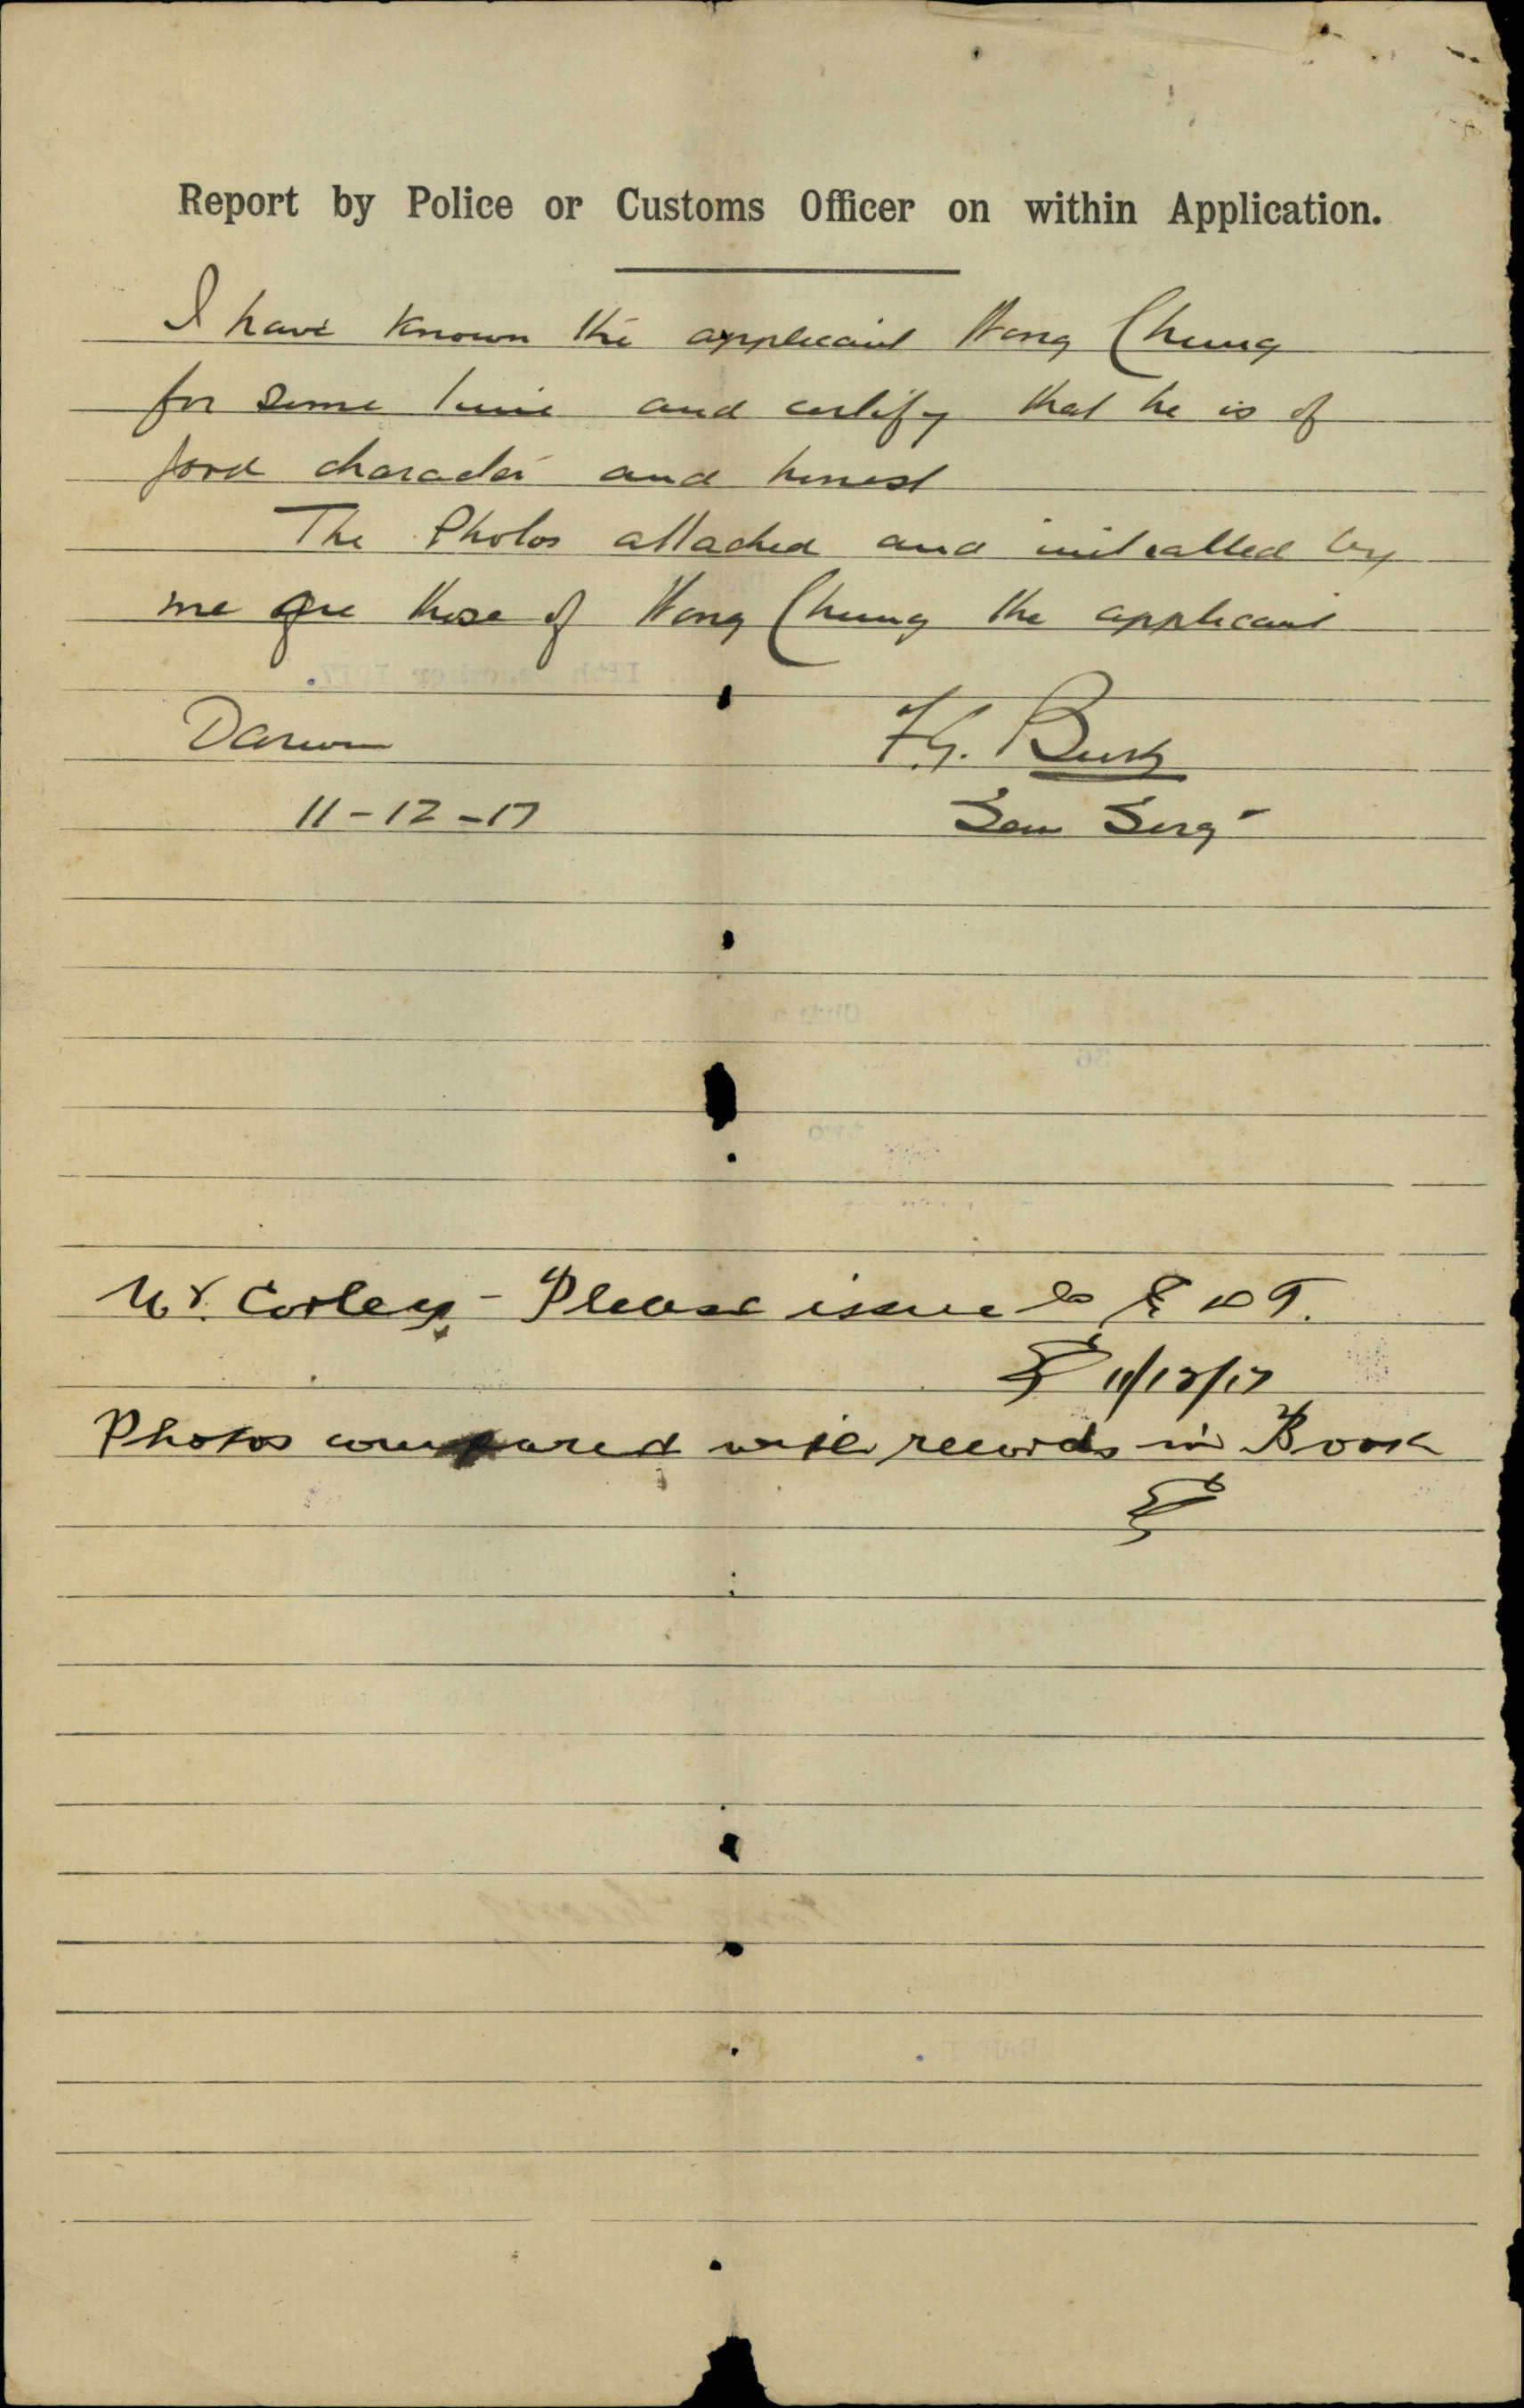 Report by Police or Customs Officer on within Application.
I have known the applicant Wong Cheung
for some time and certify that he is of
good character and honest
The Photos attached and initialled by
me are those of Wong Cheung the applicant
Darwin
F.G. Burk
11-12-17
Sen Serg
Mr. Corley - Please issue
11/12/17
Photos compared with records in Book